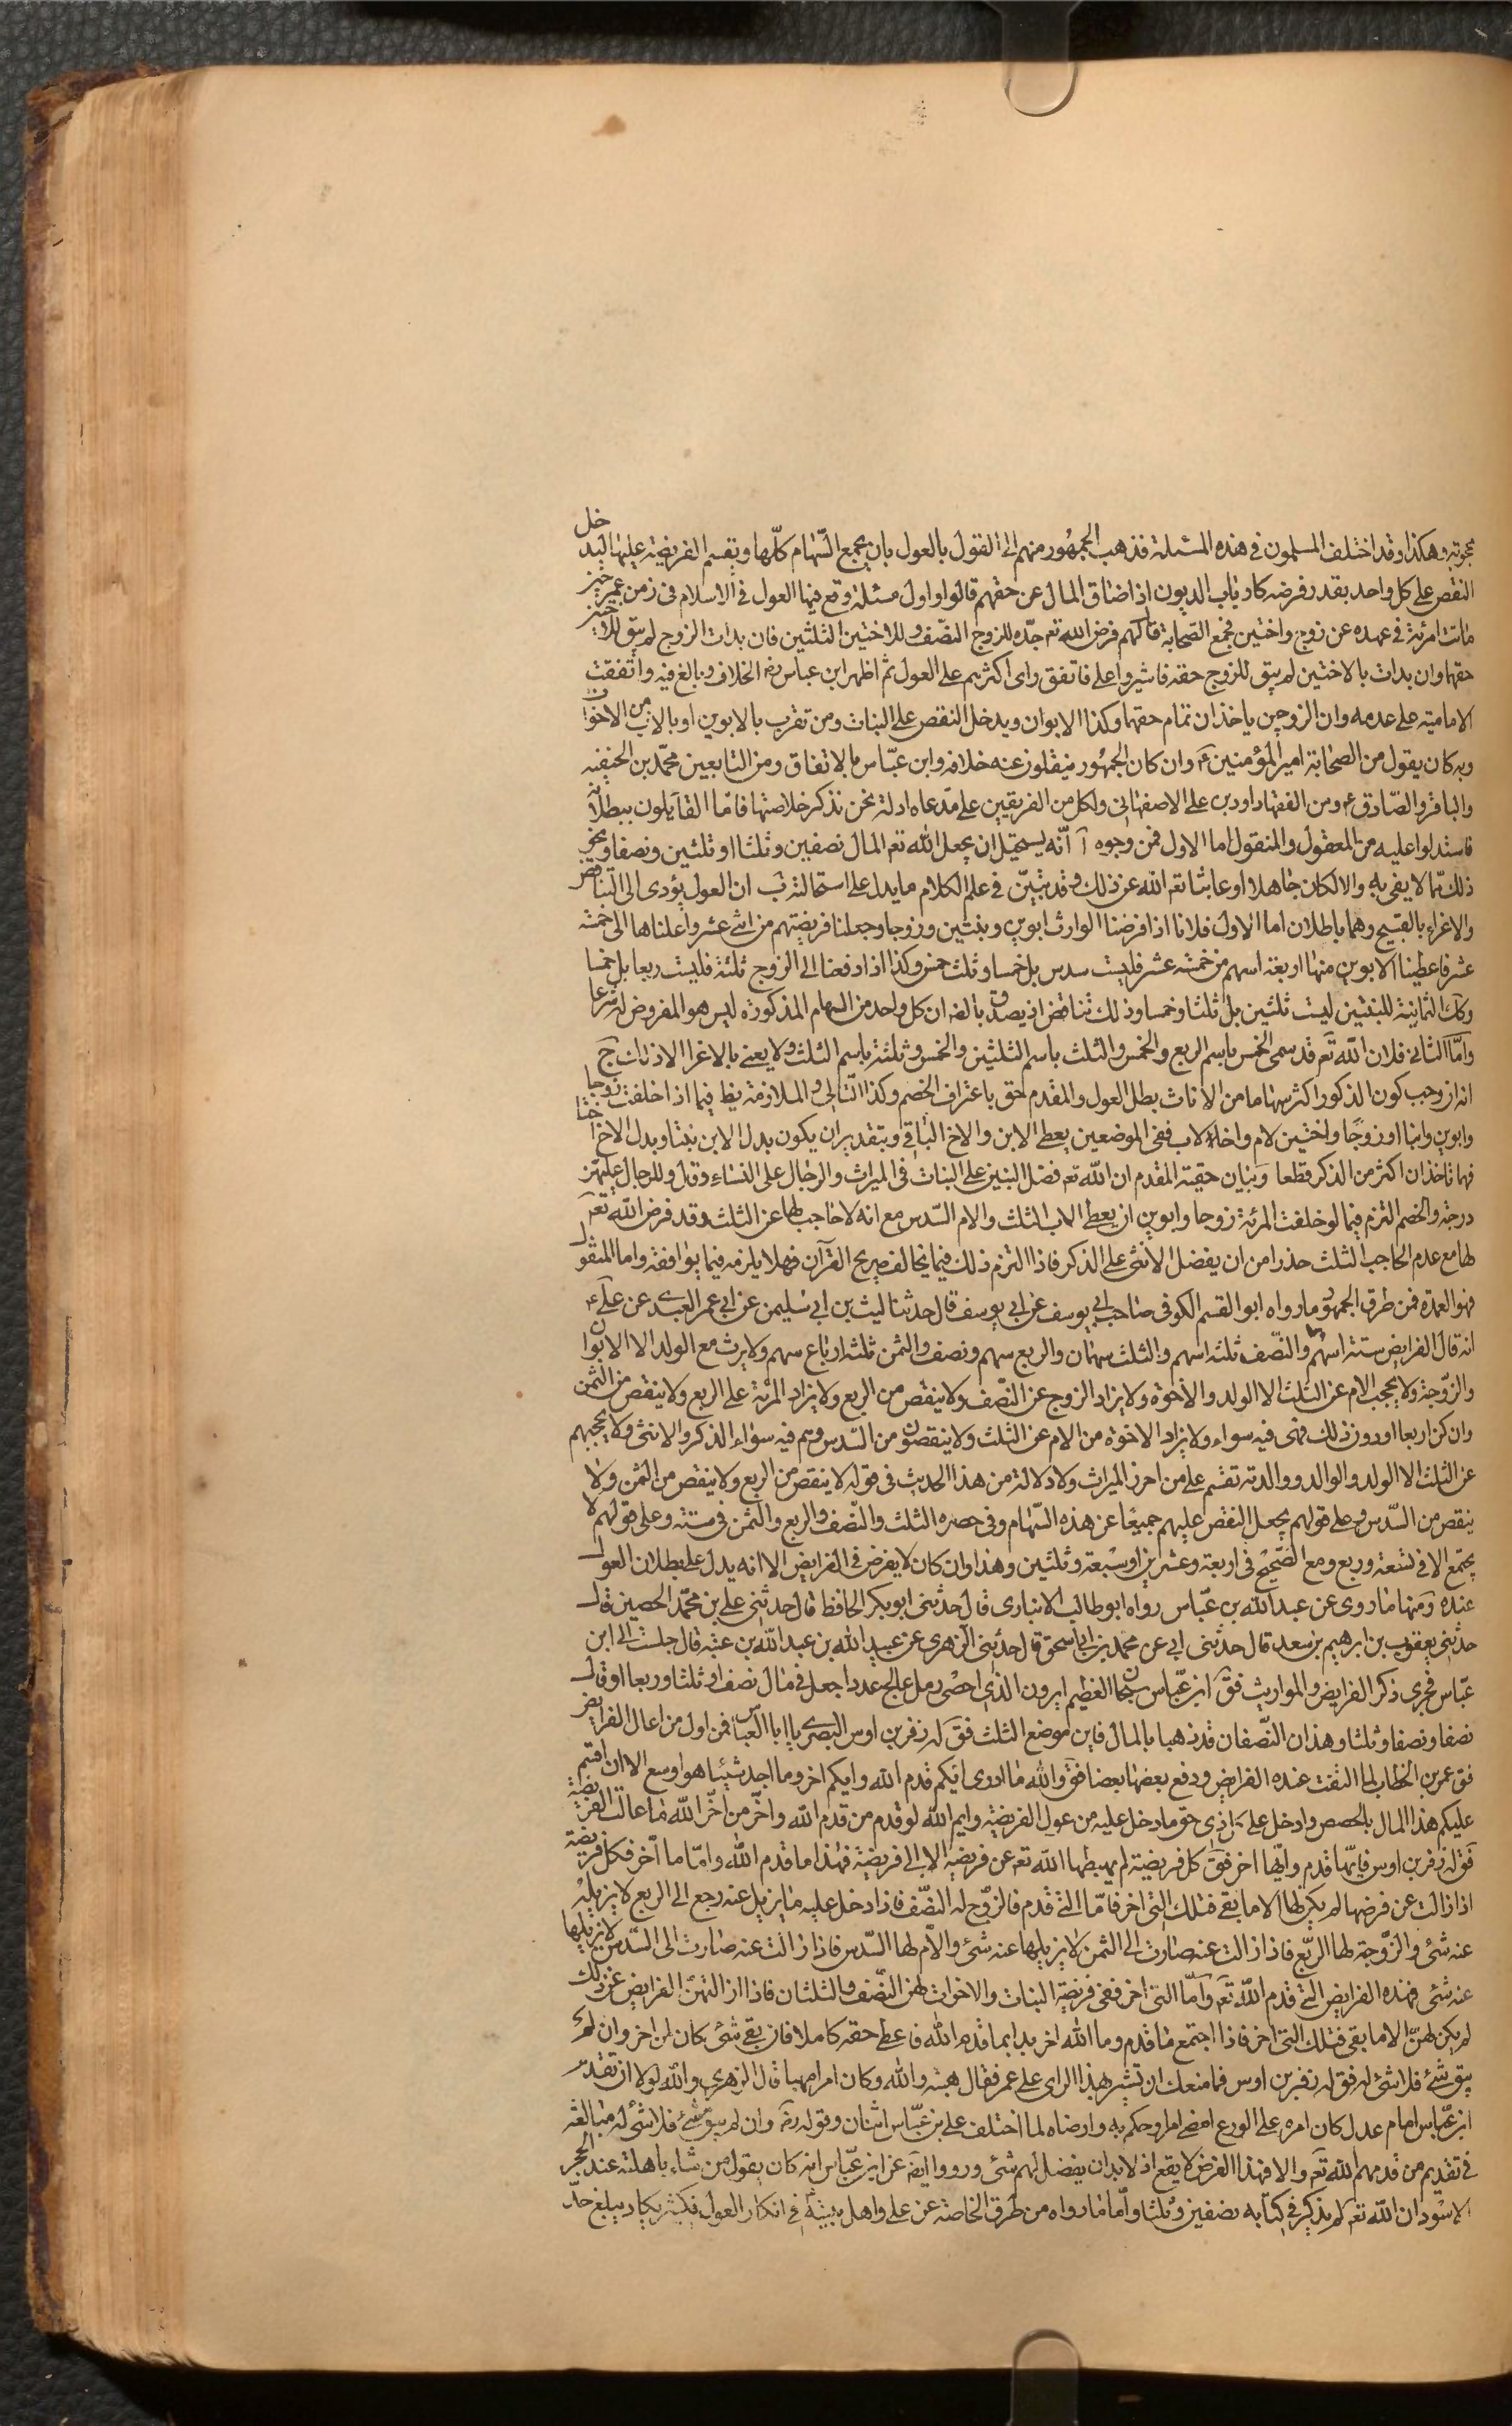 بحوته وهكذا وقد اختلف المسلمون فى هذه المسئلة فذهب الجمهور منهم الى القول بالعول بان يجمع السّهام كلّها ويقسم الفريضة عليها ليدخل
النقص على كل واحد بقدر فرضه كارباب الديون اذا ضاق المال عن حقهم قالوا واول مسئلة وقع فيها العول فى الاسلام فى زمن عمر حين
ماتت امرئة فى عهده عن زوج واختين فجمع الصّحابة قال لهم فرض الله تعه جدّه للزوج النصّف وللاختين الثلثين فان بدات الزوج لم يبق للاختين
حقهما وان بدات بالاختين لم يبق للزوج حقه فاشيروا على فاتفق راى اكثرهم على العول ثم اظهر ابن عباس رضه الخلاف وبالغ فيه واتفقت
الامامية على عدمه وان الزوجين ياخذان تمام حقهما وكذا الابوان ويدخل النقص على البنات ومن تقرب بالابوين او بالاب من الاخوات
وبه كان يقول من الصّحابة امير المؤمنين ع وان كان الجمهور ينقلون عنه خلافه وابن عبّاس بالاتفاق ومن التابعين محمّد بن الحنفيه
والباقر والصّادق ع ومن الفقهاء داود بن على الاصفهانى ولكل من الفريقين على مدّعاه ادلة نحن نذكر خلاصتها فامّا القائلون ببطلانه
فاستدلوا عليه من المعقول والمنقول اما الاول فمن وجوه آ انّه يستحيل ان يجعل الله تعه المال نصفين وثلثا او ثلثين ونصفا ونحو
ذلك ممّا لا يفى به والا لكان جاهلا او عابثا تعه الله عن ذلك وقد تبيّن فى علم الكلام ما يدل على استحالته ب ان العول يؤدى الى التناقض
والاغراء بالقبيح وهما باطلان اما الاول فلانا اذا فرضنا الوارث ابوين وبنتين وزوجا وجعلنا فريضتهم من اثنى عشر واعلناها الى خمسة
عشر فاعطينا الابوين منها اربعة اسهم من خمسة عشر فليست سدس بل خمسا وثلث خمس وكذا اذا دفعنا الى الزوج ثلثة فليست ربعا بل خمسا
وكك الثمانية للبنتين ليست ثلثين بل ثلثا وخمسا وذلك تناقض اذ يصدق بالضه ان كل واحد من السهام المذكورة ليس هو المفروض له شرعا
وامّا الثانى فلان الله تعه قد سمى الخمس باسم الربع والخمس والثلث باسم الثلثين والخمس وثلثه باسم الثلث ولا يعنى بالاغرا الا ذلك ج
انه ان وجب كون الذكور اكثر سهاما من الاناث بطل العول والمقدم حق باعتراف الخصم وكذا التالى والملازمة يظ فيما اذا خلفت زوجا
وابوين وابنا او زوجًا واختين لام واخا لاب ففى الموضعين يعطى الابن والاخ الباقى وبتقدير ان يكون بدل الابن بنتا وبدل الاخ اختا
فهما تاخذان اكثر من الذكر قطعا وبيان حقية المقدم ان الله تعه فضل البنين على البنات فى الميراث والرجال على النساء وقال وللرجال عليهن
درجة والخصم التزم فيما لو خلفت المرئة زوجا وابوين ان يعطى الاب الثلث والام السّدس مع انه لا حاجب لها عن الثلث وقد فرض الله تعه
لها مع عدم الحاجب الثلث حذرا من ان يفضل الانثى على الذكر فاذا التزم ذلك فيما يخالف صريح القرآن فهلا يلزمه فيما يوافقه واما المنقول
فهو العمدة فمن طرق الجمهور ما رواه ابو القسم الكوفى صاحب ابى يوسف عن ابى يوسف قال حدثنا ليث بن ابى سليمن عن ابى عمر العبدى عن على ع
انه قال الفرايض ستة اسهم والنصّف ثلثة اسهم والثلث سهمان والربع سهم ونصف والثمن ثلثة ارباع سهم ولا يرث مع الولد الا الابوان
والزّوجة ولا يحجب الام عن الثلث الا الولد والاخوة ولا يزاد الزوج عن النصّف ولا ينقص من الربع ولا يزاد المرئة على الربع ولا ينقص من الثمن
وان كن اربعا او دون ذلك فهن فيه سواء ولا يزاد الاخوة من الام عن الثلث ولا ينقصون من السّدس وهم فيه سواء الذكر والانثى ولا يحجبهم
عن الثلث الا الولد والوالد والدية تقسّم على من احرز الميراث ولا دلالة من هذا الحديث فى قوله لا ينقص من الربع ولا ينقص من الثمن ولا
ينقص من السّدس وعلى قولهم يجعل النقص عليهم جميعًا عن هذه السّهام وفى حصره الثلث والنصّف والربع والثمن فى ستة وعلى قولهم لا
يجتمع الا فى تسعة وربع ومع التصحيح فى اربعة وعشرين او سبعة وثلثين وهذا وان كان لا يفرض فى الفرايض الا انه يدل على بطلان العول
عنده ومنها ما روى عن عبد الله بن عبّاس رواه ابو طالب الانبارى قال حدثنى ابو بكر الحافظ قال حدثنى على بن محمّد الحصين قال
حدثنى يعقوب بن ابرهيم بن سعد قال حدثنى ابى عن محمد بن ابى اسحق قال حدثنى الزهرى عن عبيد الله بن عبد الله بن عتبه قال جلست الى ابن
عبّاس فجرى ذكر الفرايض والمواريث فقَ ابن عبّاس سبحان العظيم ايرون الذى احصى رمل عالج عددا جعل فى مال نصف او ثلثا وربعا او قال
نصفا ونصفا وثلثا وهذان النصّفان قد ذهبا بالمال فاين موضع الثلث فقَ له زفر بن اوس البصرى يا ابا العباس فمن اول من اعال الفرايض
فقَ عمر بن الخطاب لما التفت عنده الفرايض ودفع بعضها بعضا فقَ والله ما ادرى ايّكم قدم الله وايكم اخر وما اجد شيئا هو اوسع الا ان اقسم
عليكم هذا المال بالحصص وادخل على كل ذى حق ما دخل عليه من عول الفريضة وايم الله لو قدم من قدم الله واخّر من اخّر الله ما عالت الفريضة
فقَ له زفر بن اوس فايّها قدم وايّها اخر فقَ كل فريضة لم يهبطها الله تعه عن فريضة الا الى فريضة فهذا ما قدم الله وامّا ما اخّر فكل فريضة
اذا زالت عن فرضها لم يكن لها الا ما بقى فتلك التى اخر فامّا التى قدم فالزوّج له النصّف فاذا دخل عليه ما يزيل عنه رجع الى الربع لا يزيله
عنه شئ والزّوجة لها الرّبع فاذا زالت عنه صارت الى الثمن لا يزيلها عنه شئ والاّم لها السّدس فاذا زالت عنه صارت الى السّدس لا يزيلها
عنه شئ فهذه الفرايض التى قدم الله تعه وامّا التى اخر ففى فريضة البنات والاخوات لهن النصّف والثلثان فاذا ازالتهنّ الفرايض عن ذلك
لم يكن لهنّ الا ما بقى فتلك التى اخر فاذا اجتمع ما قدم وما الله اخر بدا بما قدم الله فاعطى حقه كاملا فان بقى شئ كان لمن اخر وان لم
يبق شئ فلا شئ له فقَ له زفر بن اوس فما منعك ان تشير بهذا الراى على عمر فقال هبته والله وكان امرا مهيبا قال الزهرى والله لولا ان تقدمّ
ابن عبّاس امام عدل كان امره على الورع امضى امرا وحكم به وارضاه لما اختلف على بن عبّاس اثنان وقوله رضه وان لم يبق شئ فلا شئ له مبالغة
فى تقديم من قدمهم الله تعه والا فهذا الفرض لا يقع اذ لا بد ان يفضل لهم شئ ورووا ايضه عن ابن عبّاس انه كان يقول من شاء باهلته عند الحجر
الاسود ان الله تعه لم يذكر فى كتابه نصفين وثلثا وامّا ما رواه من طرق الخاصة عن على واهل بيته فى انكار العول فكثير يكاد يبلغ حدّ